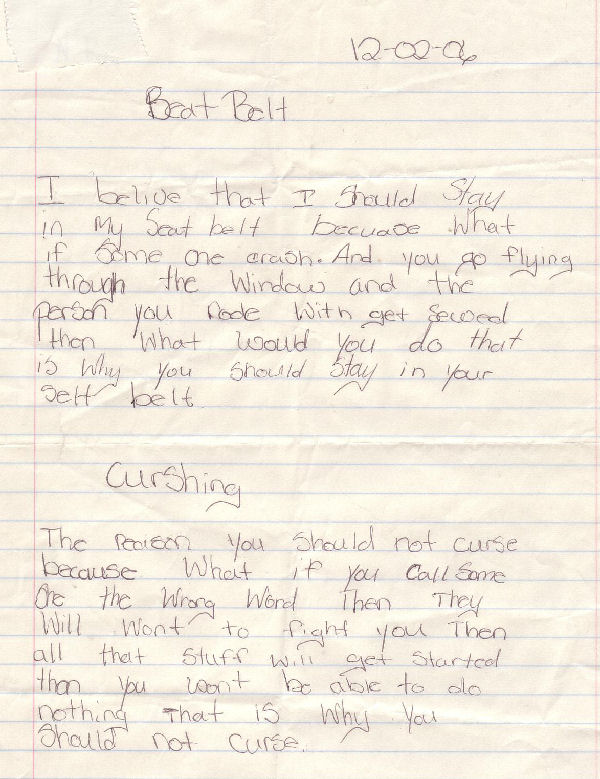 12-02-06
Seat Belt
I belive that I should Stay
in My Seat belt becuase What
if Some one crash. And you go flying
through the Window and the
person you Rode With get Sewed
then What Would you do that
is Why you Should Stay in your
Sett belt.
CurShing
The Reason you Should not curse
because What if you Call Some
One the Wrong Word Then They
Will Wont to fight you Then
all that Stuff Will get Started
than you Won't be able to do
nothing That is Why You
Should not Curse.